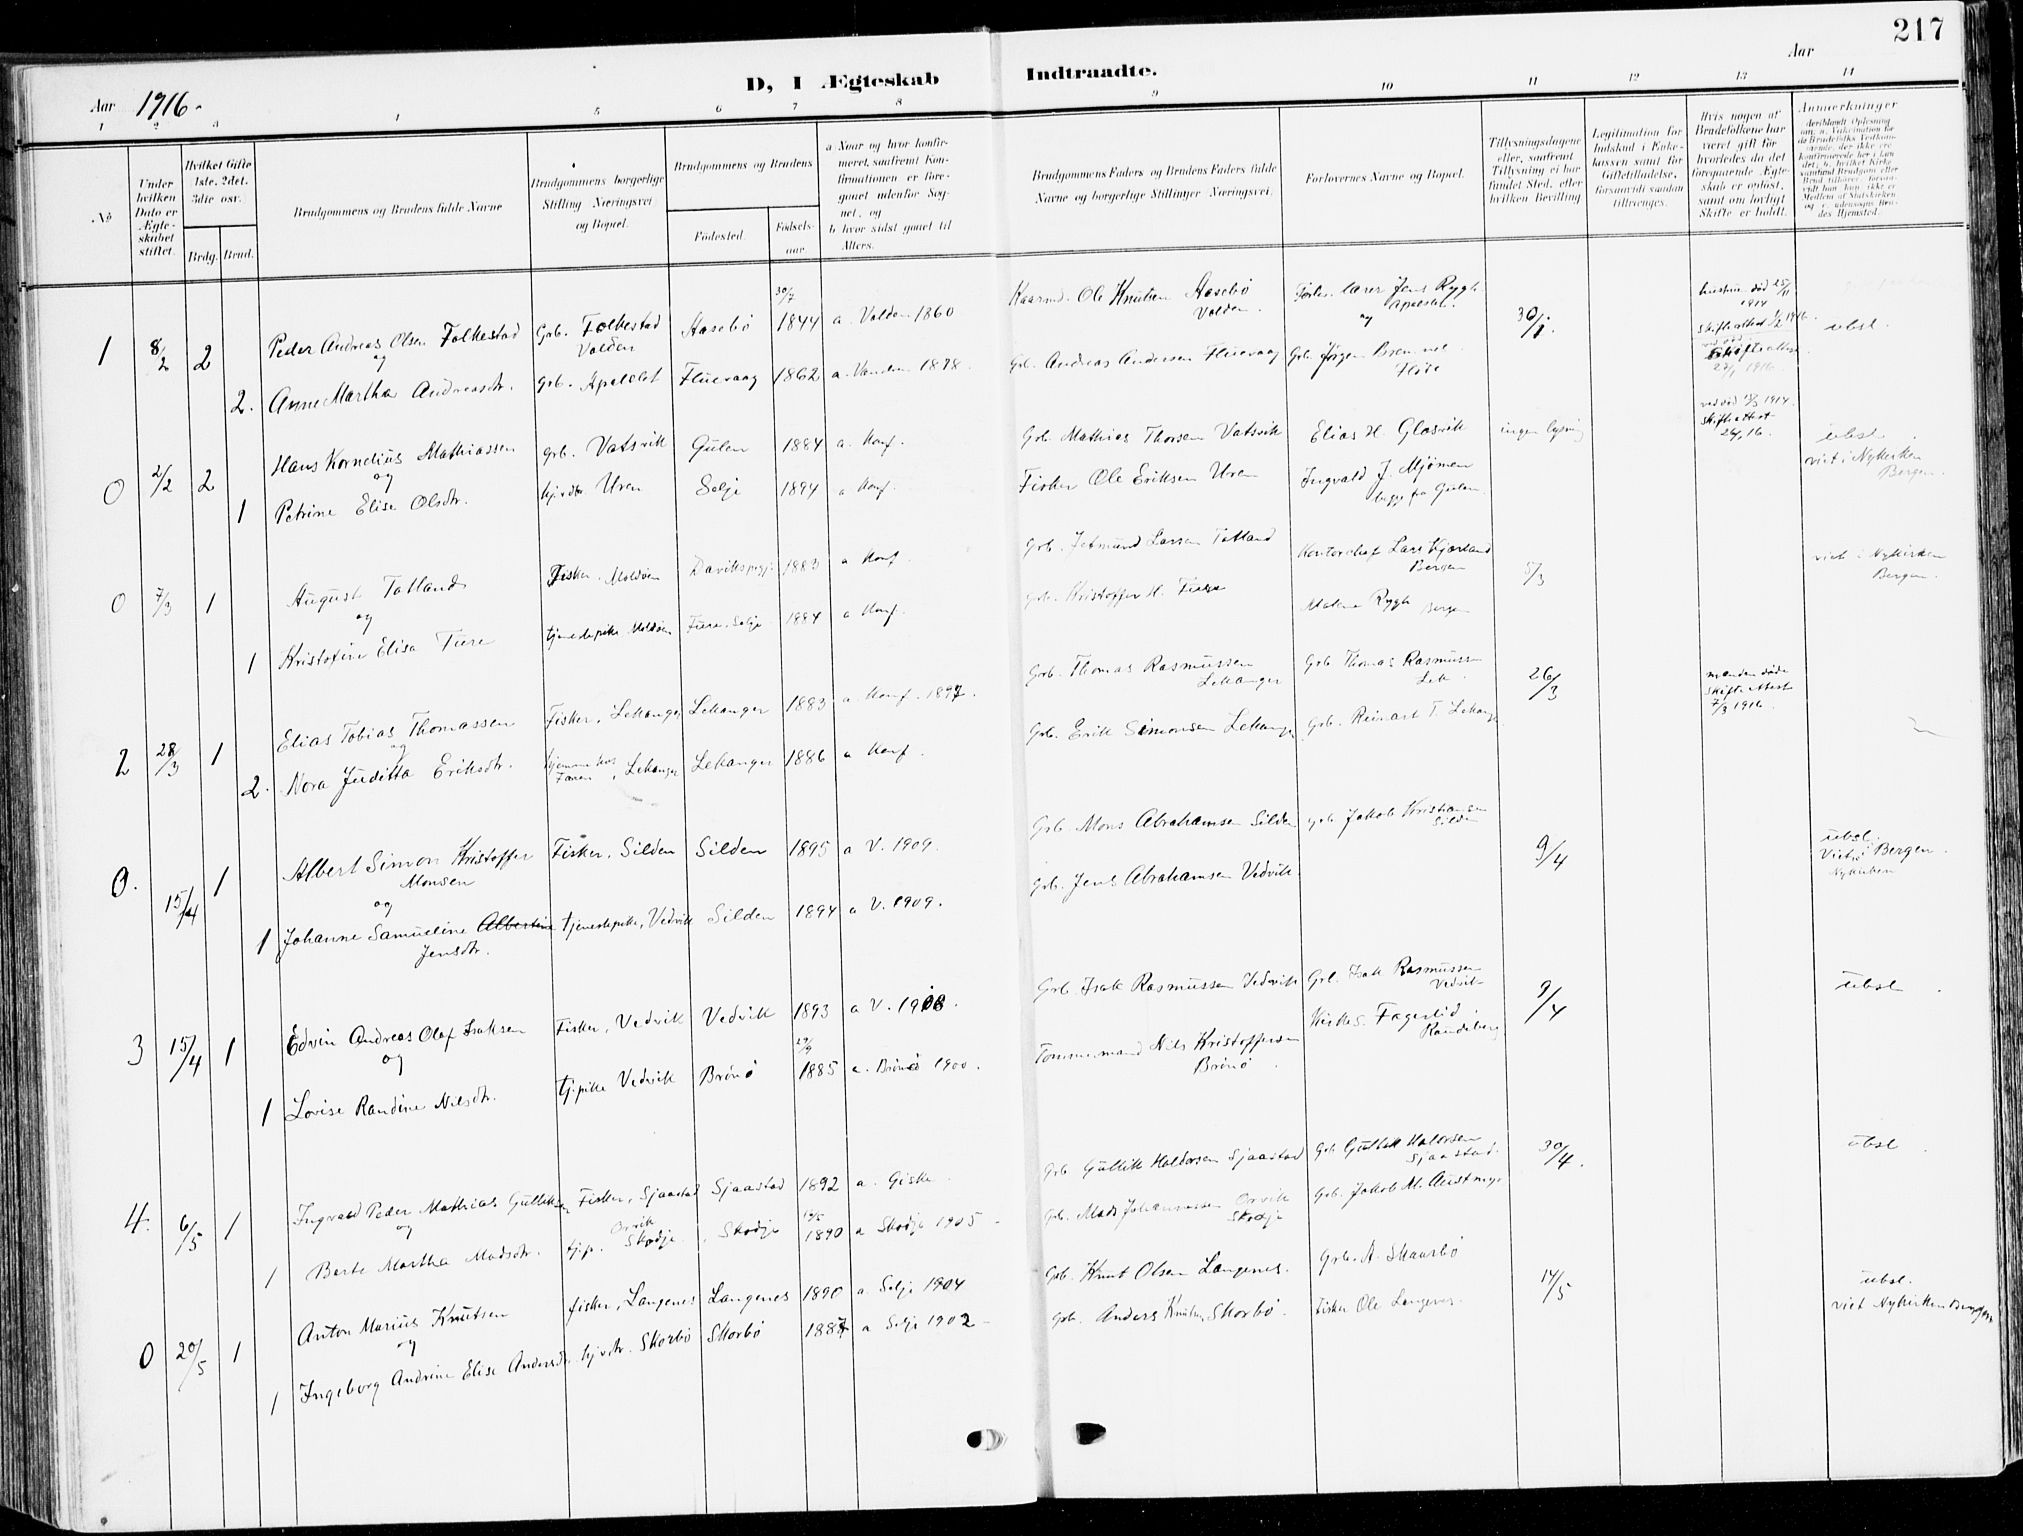 217
D, I Ægteskab Indtraadte.
Aar 1916.
Aar
1 2 3 4 5 6 7 8 9 10 11 12 13 14
No
Under hvilken Dato er Ægteskabet stiftet.
Hvilket Gifte 1ste. 2det. 3die osv.
Brdg. Brud.
Brudgommens og Brudens fulde Navne
Brudgommens borgerlige Stilling Næringsvei og Bopæl.
Brudgommens og Brudens
Fødested.
Fødselsaar
a Naar og hvor konfirmeret, saafremt Konfirmationen er foregaaet udenfor Sognet, og
b hvor sidst gaaet til Alters.
Brudgommens Faders og Brudens Faders fulde Navne og borgerlige Stillinger Næringsvei.
Forlovernes Navne og Bopæl.
Tillysningsdagene eller, saafremt Tillysning ei har fundet Sted, efter hvilken Bevilling
Legitimation for Indskud i Enkekassen samt for Giftetilladelse, forsaavidt saadan tiltrænges.
Hvis nogen af Brudefolkene har været gift før hvorledes da det foregaaende Ægteskab er opløst, samt om lovligt Skifte er holdt.
Anmerkninger
1 8/2 2 Peder Andreas Olsen Folkestad Grb. Folkestad Volden Aasebø 30/7 1844 a. Volden 1860 Kaarmd. Ole Knutsen Aasebø Volden. lærer Jens Rygh Apalset. 30/1. hustru død 25/11 1914 skifteattest 1/2 1916. ubsl.
og
2. Anne Martha Andreasdtr. grb. Apalset Fluevaag 1862 a. Vanelven 1878. Grb. Andreas Andersen Fluevaag Grb. Jørgen Brennes Flote skifteattest 27/1 1916.
0 2/2 2 Hans Kornelius Mathiassen grb. Vatsvik Gulen 1884 a. Konf. Grb. Mathias Thorsen Vatsvik Elias H. Glosvik ingen lysning ved død 1914. skifteattest 26/1 16. ubsl.
og
1 Petrine Elise Olsdtr. Uren Selje 1894 a Konf. Fisker Ole Eriksen Uren Ingvald J. Mjømen begge fra Gulen. viet i Nykirken Bergen.
0 7/3 1 August Totland Fisker. Moldøen 1883 a Konf. Grb. Jetmund Larsen Totland Kontorchef Lars Kjørland Bergen 5/3 viet i Nykirken Bergen.
og
1 Kristofine Elisa Fure tjenestepike Moldøen Fure, Selje 1884 a Konf. grb. Kristoffer H. Fure Malene Rygh Bergen
2 28/3 1 Elias Tobias Thomassen Fisker, Lekanger Lekanger 1883 a. Konf. 1897. Grb. Thomas Rasmussen Lekanger Grb Thomas Rasmussen Lek. 26/3 manden døde skifteattest 7/3 1916
og
2. Nora Juditta Eriksdtr. hjemme hos Faren, Lekanger Lekanger 1886 a Konf. Grb. Erik Simonsen Lekanger Grb. Reinart T. Lekanger
0. 15/4 1 Albert Simon Kristoffer Monsen Fisker, Silden Silden 1895 a V. 1909. Grb. Mons Abrahamsen Silden grb Jakob Kristiansen Silden 9/4 ubsl. Viet i Bergen. Nykirken
og
1 Johanne Samueline Albertine Jensdtr. tjenestepike, Vedvik Silden 1894 a V. 1909. Grb. Jens Abrahamsen Vedvik
3 15/4 1 Edvin Andreas Olaf Isaksen Fisker, Vedvik Vedvik 1893 a V. 1908. Grb. Isak Rasmussen Vedvik Grb. Isak Rasmussen Vedvik 9/4 ubsl.
og
1 Lovise Randine Nilsdtr. tj.pike Vedvik Brønø 29/9 1885 a. Brønø 1900. Tømmermand Nils Kristoffersen Brønø. Kirkes. Fagerlid, Randaberg
4. 6/5 1 Ingvald Peder Mathias Gulliksen Fisker, Sjaastad Sjaastad 1892 a. Giske. Grb Gullik Haldorsen Sjaastad Grb Gullik Haldorsen Sjaastad. 30/4. ubsl.
og
1 Berte Martha Madsdtr. tj.p. Orvik Skodje. Skodje 1890 a Skodje 1905. Grb. Mads Johannessen Orvik Skodje Grb. Jakob M. Austnes
0 20/5 1 Anton Marius Knutsen fisker, Langenes Langenes 1890 a. Selje 1904 Grb. Knut Olsen Langenes. Grb. A. Skaarbø 14/5 ubsl.
og
1 Ingeborg Andrine Elise Andersdtr. Skorbø Skorbø 1887 a Selje 1902 Grb. Anders Knutsen Skorbø. Fisker Ole Langenes. viet Nykirken Bergen